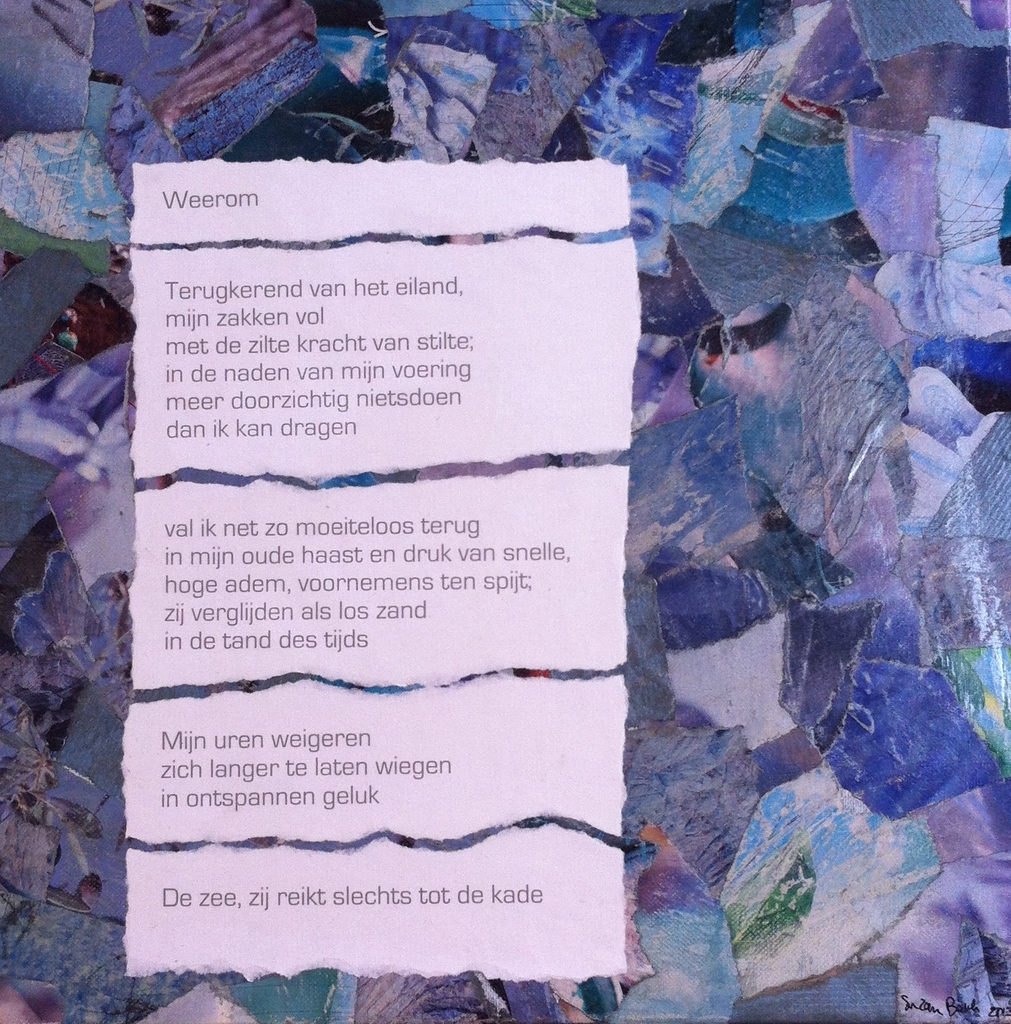 Weerom
Terugkerend van het eiland,
mijn zakken vol
met de zilte kracht van stilte;
in de naden van mijn voering
meer doorzichtig nietsdoen
dan ik kan dragen
val ik net zo moeiteloos terug
in mijn oude haast en druk van snelle,
hoge adem, voornemens ten spijt;
zij verglijden als los zand
in de tand des tijds
Mijn uren weigeren
zich langer te laten wiegen
in ontspannen geluk
De zee, zij reikt slechts tot de kade
Suzan